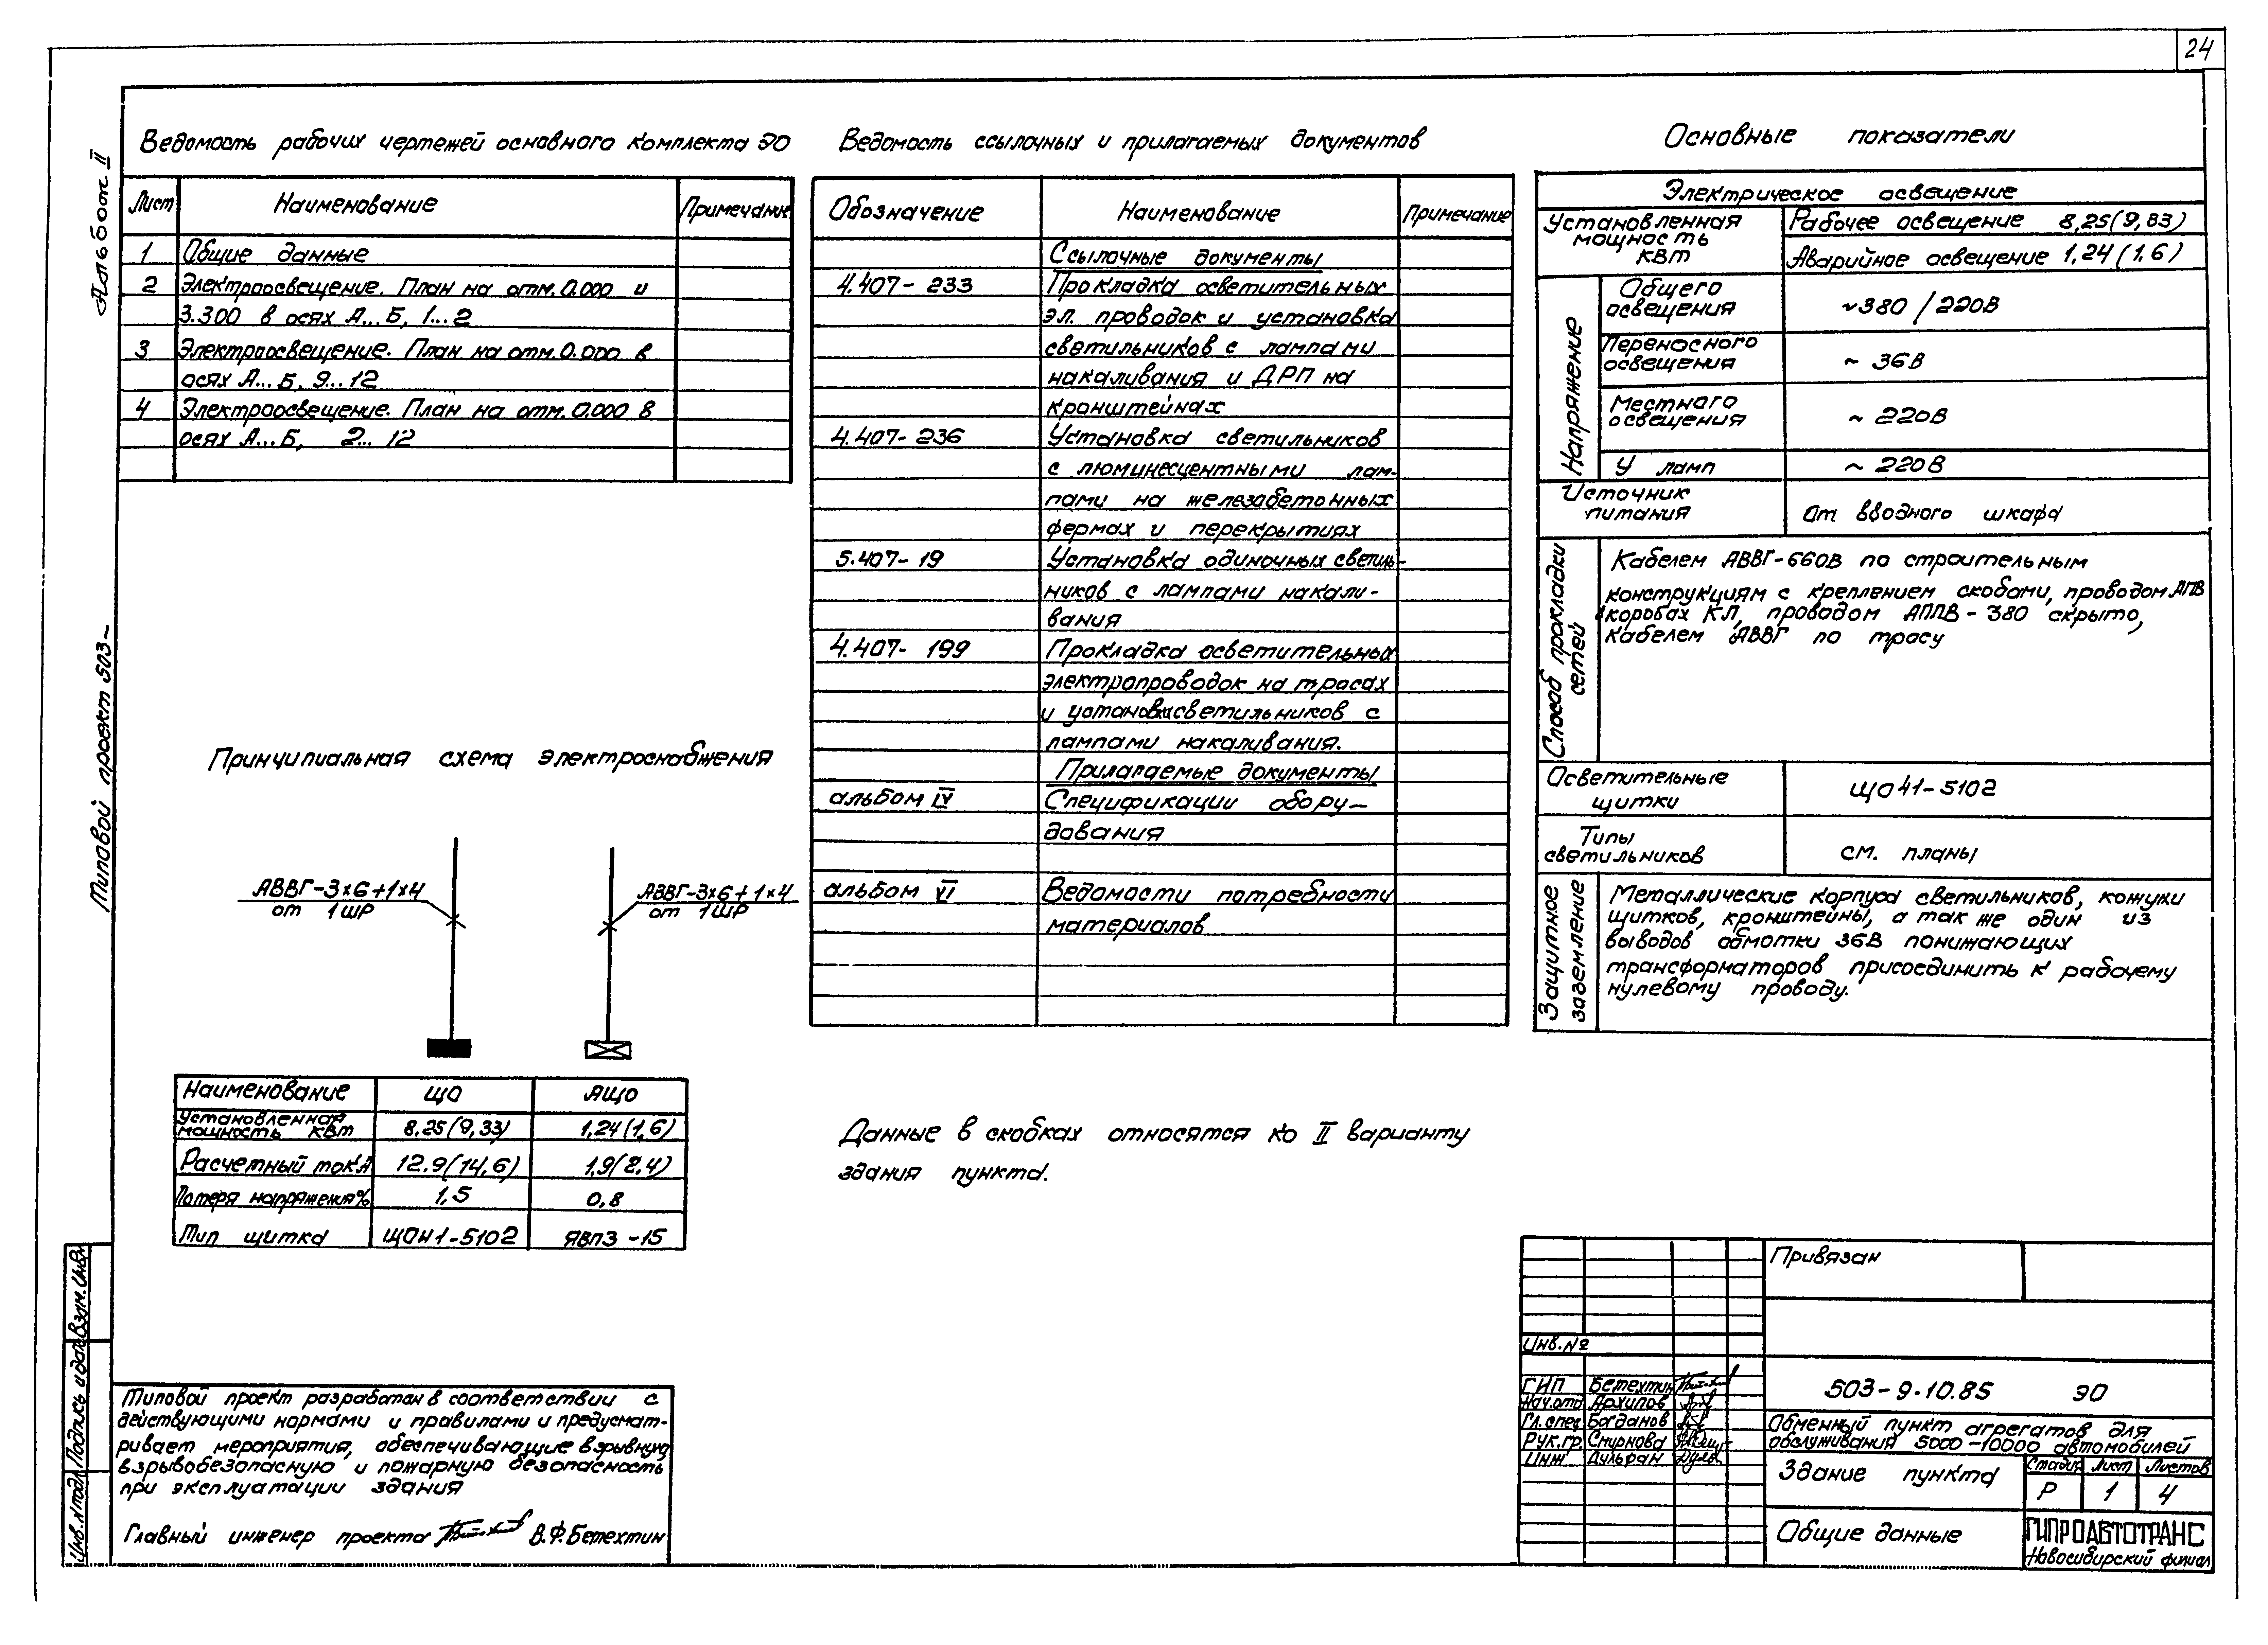 24
Альбом II
Типовой проект 503-
Ведомость рабочих чертежей основного комплекта ЭО
Лист Наименование Примечание
1 Общие данные
2 Электроосвещение. План на отм. 0.000 и
3.300 в осях А...Б, 1...2
3 Электроосвещение. План на отм. 0.000 в
осях А...Б, 9...12
4 Электроосвещение. План на отм. 0.000 в
осях А...Б, 2...12
Принципиальная схема электроснабжения
АВВГ-3х6+1х4
от 1ШР
АВВГ-3х6+1х4
от 1ШР
Наименование ЩО АЩО
Установленная
мощность квт 8,25(9,33) 1,24(1,6)
Расчетный ток А 12.9(14,6) 1,9(2,4)
Потеря напряжения% 1,5 0,8
Тип щитка ЩОН1-5102 ЯВПЗ-15
Ведомость ссылочных и прилагаемых документов
Обозначение Наименование Примечание
Ссылочные документы
4.407-233 Прокладка осветительных
эл. проводок и установка
светильников с лампами
накаливания и ДРП на
кронштейнах
4.407-236 Установка светильников
с люминесцентными лам-
пами на железабетонных
фермах и перекрытиях
5.407-19 Установка одиночных светиль-
ников с лампами накали-
вания
4.407-199 Прокладка осветительных
электропроводок на тросах
и установка светильников с
лампами накаливания.
Прилагаемые документы
альбом IV Спецификации обору-
дования
альбом VI Ведомости потребности
материалов
Данные в скобках относятся ко II варианту
здания пункта.
Основные показатели
Электрическое освещение
Установленная
мощность
квт
Рабочее освещение 8,25(9,83)
Аварийное освещение 1,24(1,6)
Напряжение
Общего
освещения ~380/220В
Переносного
освещения ~ 36В
Местного
освещения ~ 220В
У ламп ~ 220В
Источник
питания От вводного шкафа
Способ прокладки
сетей
Кабелем АВВГ-660В по строительным
конструкциям с креплением скобами, проводом АПВ
в коробах КЛ, проводом АППВ-380 скрыто,
кабелем АВВГ по тросу
Осветительные
щитки ЩО41-5102
Типы
светильников см. планы
Защитное
заземление
Металлические корпуса светильников, кожухи
щитков, кронштейны, а так же один из
выводов обмотки 36В понижающих
трансформаторов присоединить к рабочему
нулевому проводу.
Типовой проект разработан в соответствии с
действующими нормами и правилами и предусмат-
ривает мероприятия, обеспечивающие взрывную
взрывобезопасную и пожарную безопасность
при эксплуатации здания
Главный инженер проекта В.Ф.Бетехтин
Инв.№подл Подпись и дата Взам.инв.№
Привязан
Инв.№
ГИП Бетехтин
Нач.отд Архипов
Гл.спец Богданов
Рук.гр. Смирнова
Инж Дульфан
503-9-10.85 ЭО
Обменный пункт агрегатов для
обслуживания 5000-10000 автомобилей
Здание пункта
Стадия Лист Листов
Р 1 4
Общие данные
ГИПРОАВТОТРАНС
Новосибирский филиал